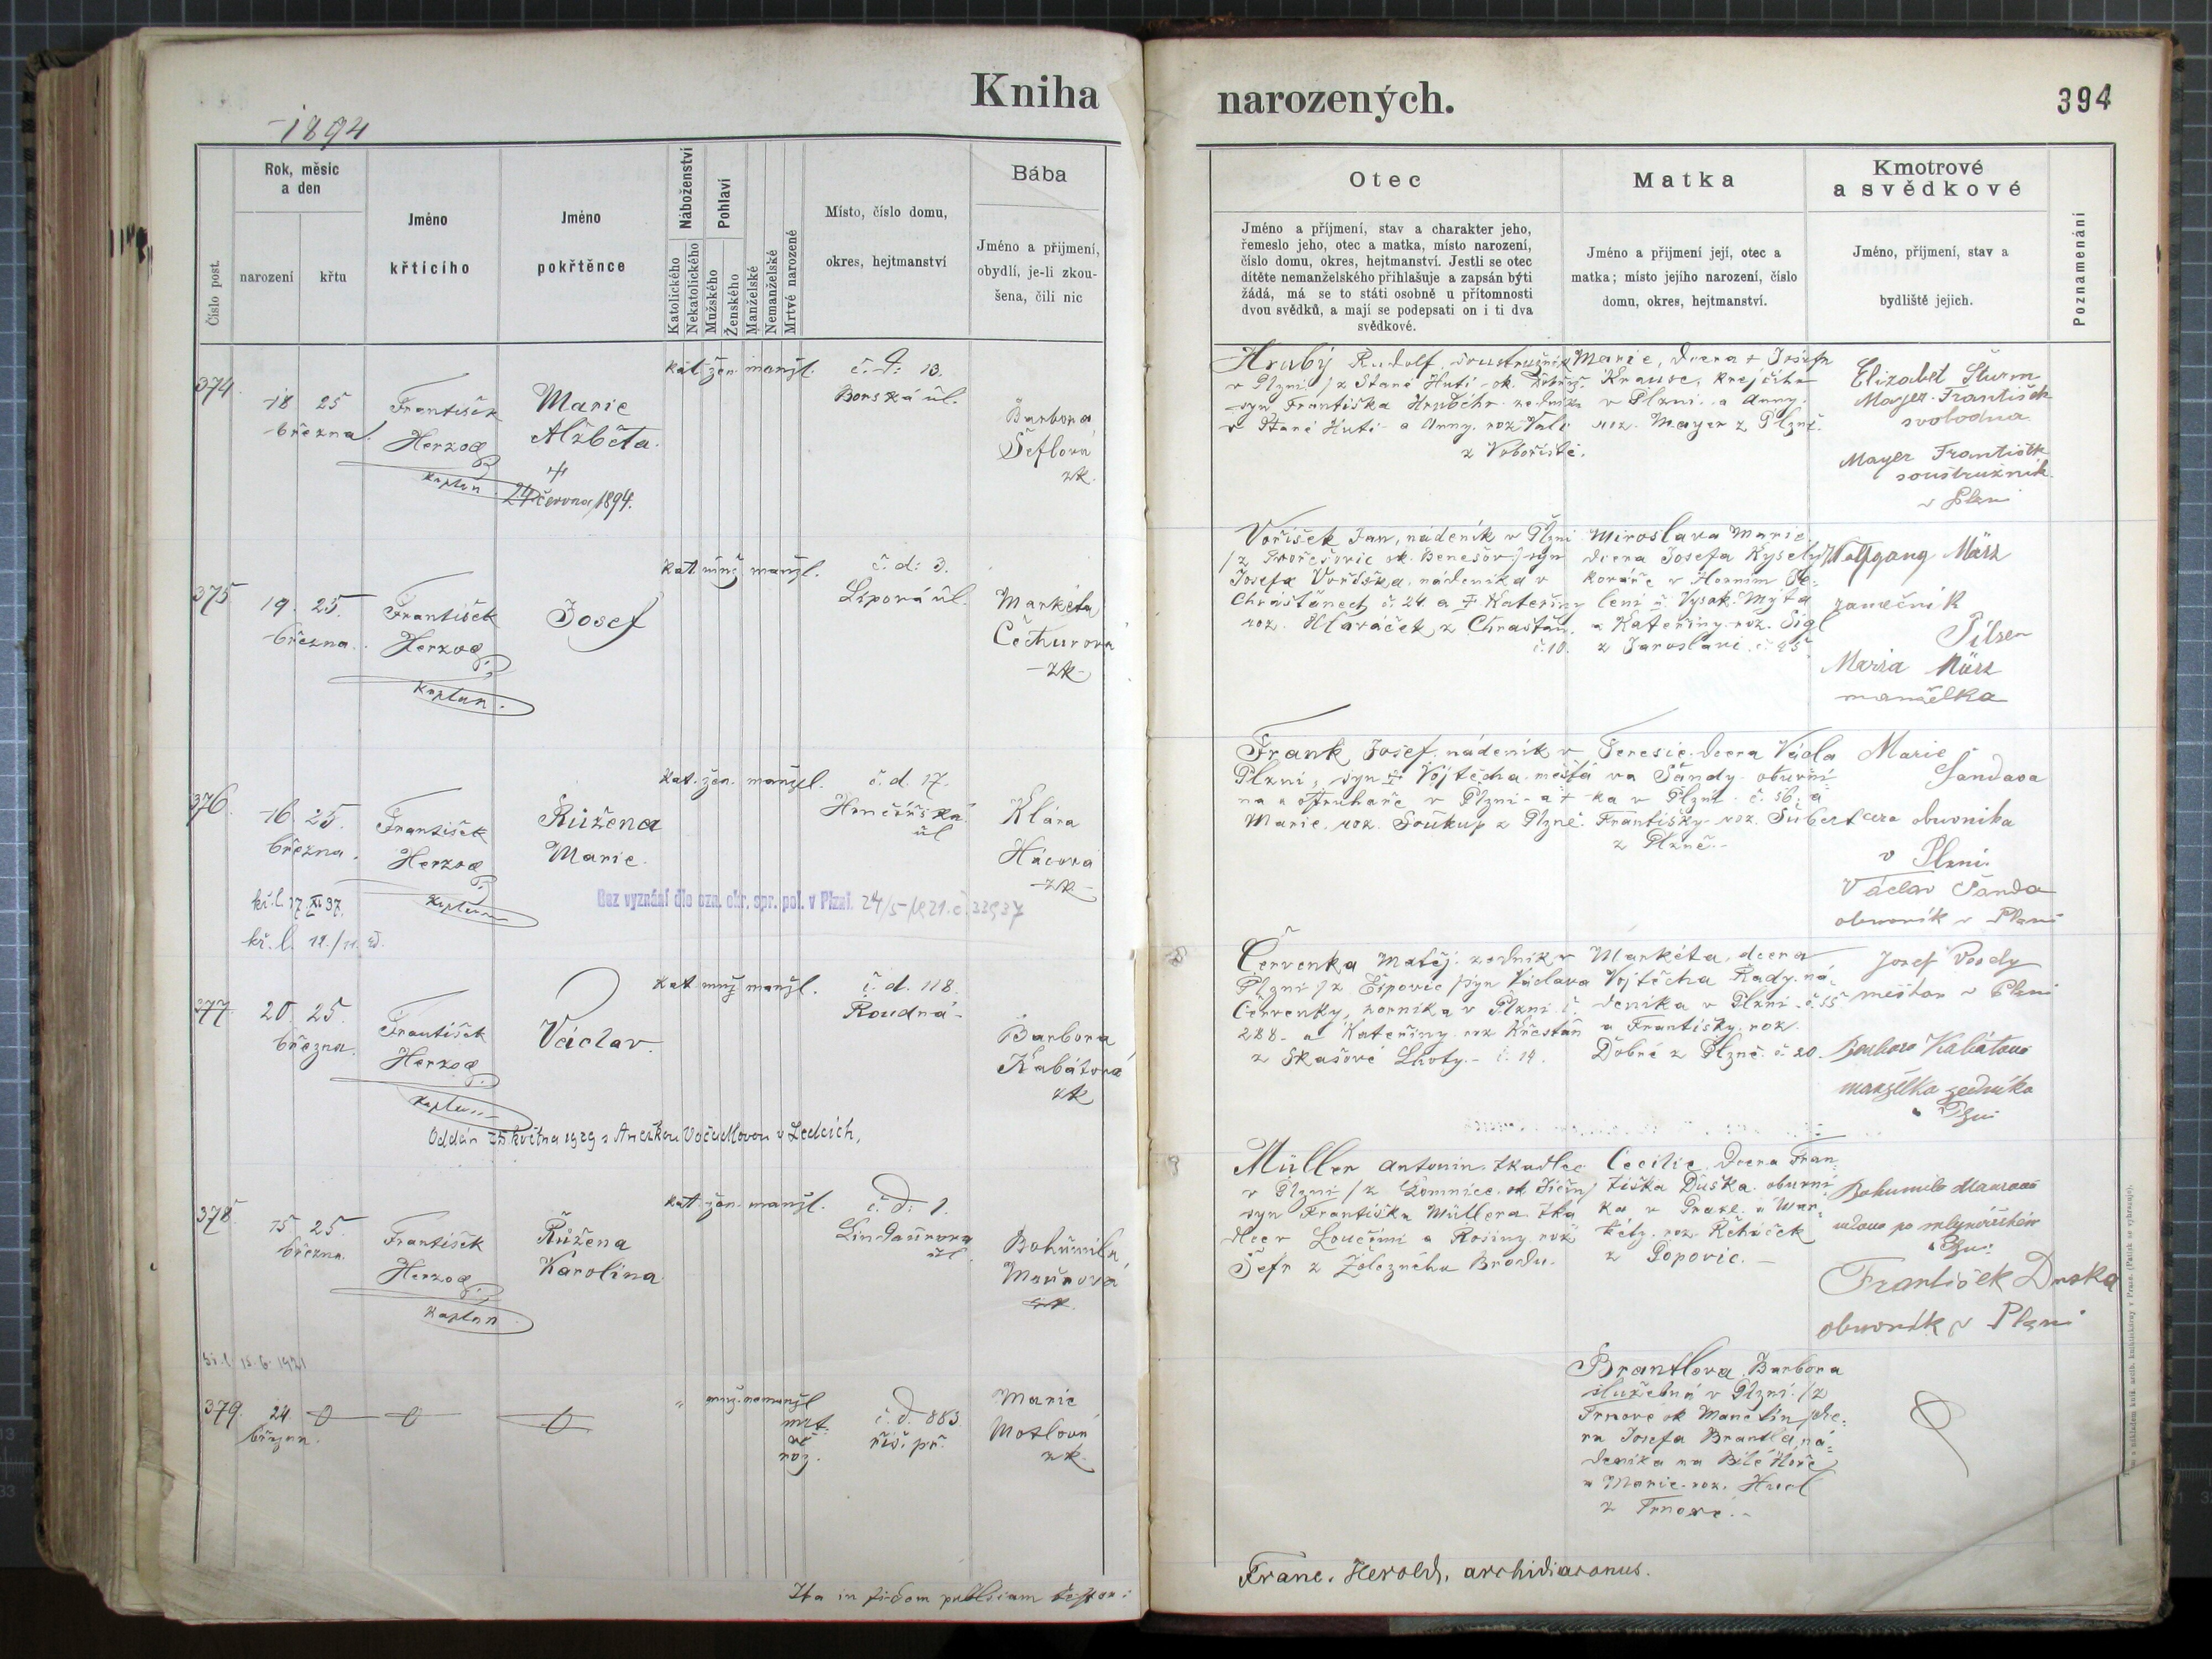 Kniha
narozených.
394
1894
Číslo post.
Rok, měsíc
a den
narození
křtu
Jméno
křtícího
Jméno
pokřtěnce
Náboženství
Katolického
Nekatolického
Pohlaví
Mužského
Ženského
Manželské
Nemanželské
Mrtvé narozené
Místo, číslo domu,
okres, hejtmanství
Bába
Jméno a přijmení,
obydlí, je-li zkou-
šena, čili nic
Otec
Jméno a příjmení, stav a charakter jeho,
řemeslo jeho, otec a matka, místo narození,
číslo domu, okres, hejtmanství. Jestli se otec
dítěte nemanželského přihlašuje a zapsán býti
žádá, má se to státi osobně u přítomnosti
dvou svědků, a mají se podepsati on i ti dva
svědkové.
Matka
Jméno a přijmení její, otec a
matka; místo jejího narození, číslo
domu, okres, hejtmanství.
Kmotrové
a svědkové
Jméno, příjmení, stav a
bydliště jejich.
Poznamenání
374
18 25
března.
František
Herzog
kaplan
Marie
Alžběta.
24 června 1894.
kat. žen. manžl.
č. d: 13.
Borská úl.
Barbora
Šeflová
zk.
Hrubý Rudolf, soustružník
v Plzni /z Staré Huti ok. Dobříš
syn Františka zedníka
v Staré Huti a Anny. roz.
z Voboriště.
Marie, dcera + Josefa
Krause, krejčího
v Plzni a Anny.
roz. Mayer z Plzně.
Elizabet Šturm
Mayer František
svobodna
Mayer František
soustružník
v Plzni
375
19. 25.
března.
František
Herzog
kaplan.
Josef
kat. muž. manžl.
č. d: 3.
Liporá úl.
Markéta
Čečturová
zk
Voříšek Jan, nádeník v Plzni
ok. Benešov / syn
Josefa Voříška, nádeníka v
Chrášťanech č. 24. a + Kateřiny
roz. Hlaváček z Chrášťan.
č. 10.
Miroslava Marie
dcera Josefa Kyselý
kováře v Horním
lení u Vysok. Mýta
a Kateřiny roz. Sigl
z Jaroslavi č. 45
Wolfgang März
zamečnik
Pilsen
Maria März
manželka
376.
16 25.
března.
kř. l. 17. XI 97.
kř. l. 12./11.
František
Herzog
kaplan
Růžena
Marie.
kat. žen. manžel.
č. d. 17.
Hrnčířská
úl
Klára
Hácová
zk
Bez vyznání dle ozn. okr. spr. pol. v Plzni. 24/5 1921. č. 33937
Frank Josef. nádeník v
Plzni, syn + Vojtěcha měšťa
na a ostruhaře v Plzni a +
Marie, roz. Soukup z Plzně.
Teresie. dcera Václa
va Šandy obuvní
ka v Plzni č. 56, a
Františky roz. Šubert
z Plzně.
Marie
Šandova
cera obuvnika
v Plzni
Václav Šanda
obuvník v Plzni
377
20 25.
března.
František
Herzog
kaplan
Václav.
kat. muž. manžl.
č. d. 118.
Roudná
Barbora
Kabátová
zk
Oddán 25. května 1929 s Anežkou v Ledcích,
Červenka Matěj. zedník v
Plzni /z Eipovic /syn Václava
Červenky, horníka v Plzni č.
288. a Kateřiny roz Křesťan
z Skašové Lhoty. č. 14.
Markéta, dcera
Vojtěcha Rady. ná
deníka v Plzni č. 55
a Františky. roz.
Dobré z Plzně. č. 20.
Josef
meštan v Plzni
Barbora Kabátová
manželka zedníka
v Plzni
378.
15 25.
března.
František
Herzog
kaplan
Růžena
Karolina
kat. žen. manžl.
č. d: 1.
Lindaurova
úl.
Bohumila
Maurová
zk.
Müller Antonín. tkadlec
v Plzni /z Lomnice ok Jičín/
syn Františka Müllera. tka
dlce v Loučími a Rosiny roz
Šefr z Železného Brodu.
Cecilie. dcera Fran
tiška Duška. obuvní
ka v Praze. a Mar
kéty. roz. Řeháček
z Popovic.
Bohumila Maurová
vdova po
v Plzni
František Duška
obuvník v Plzni
15. 6. 1921
379.
24
března.
" muž. nemanžl
mrt.
vě
roz.
č. d. 883.
říš. př.
Marie
Motlová
zk
Brantlova Barbora
služebná v Plzni /z
Trnové ok Manětín /dce
ra Josefa Brantla, ná
deníka na Bílé Hoře
a Marie roz.
z Trnové.
Ita in fidem publicam testor:
Franc. Herold, archidiaconus.